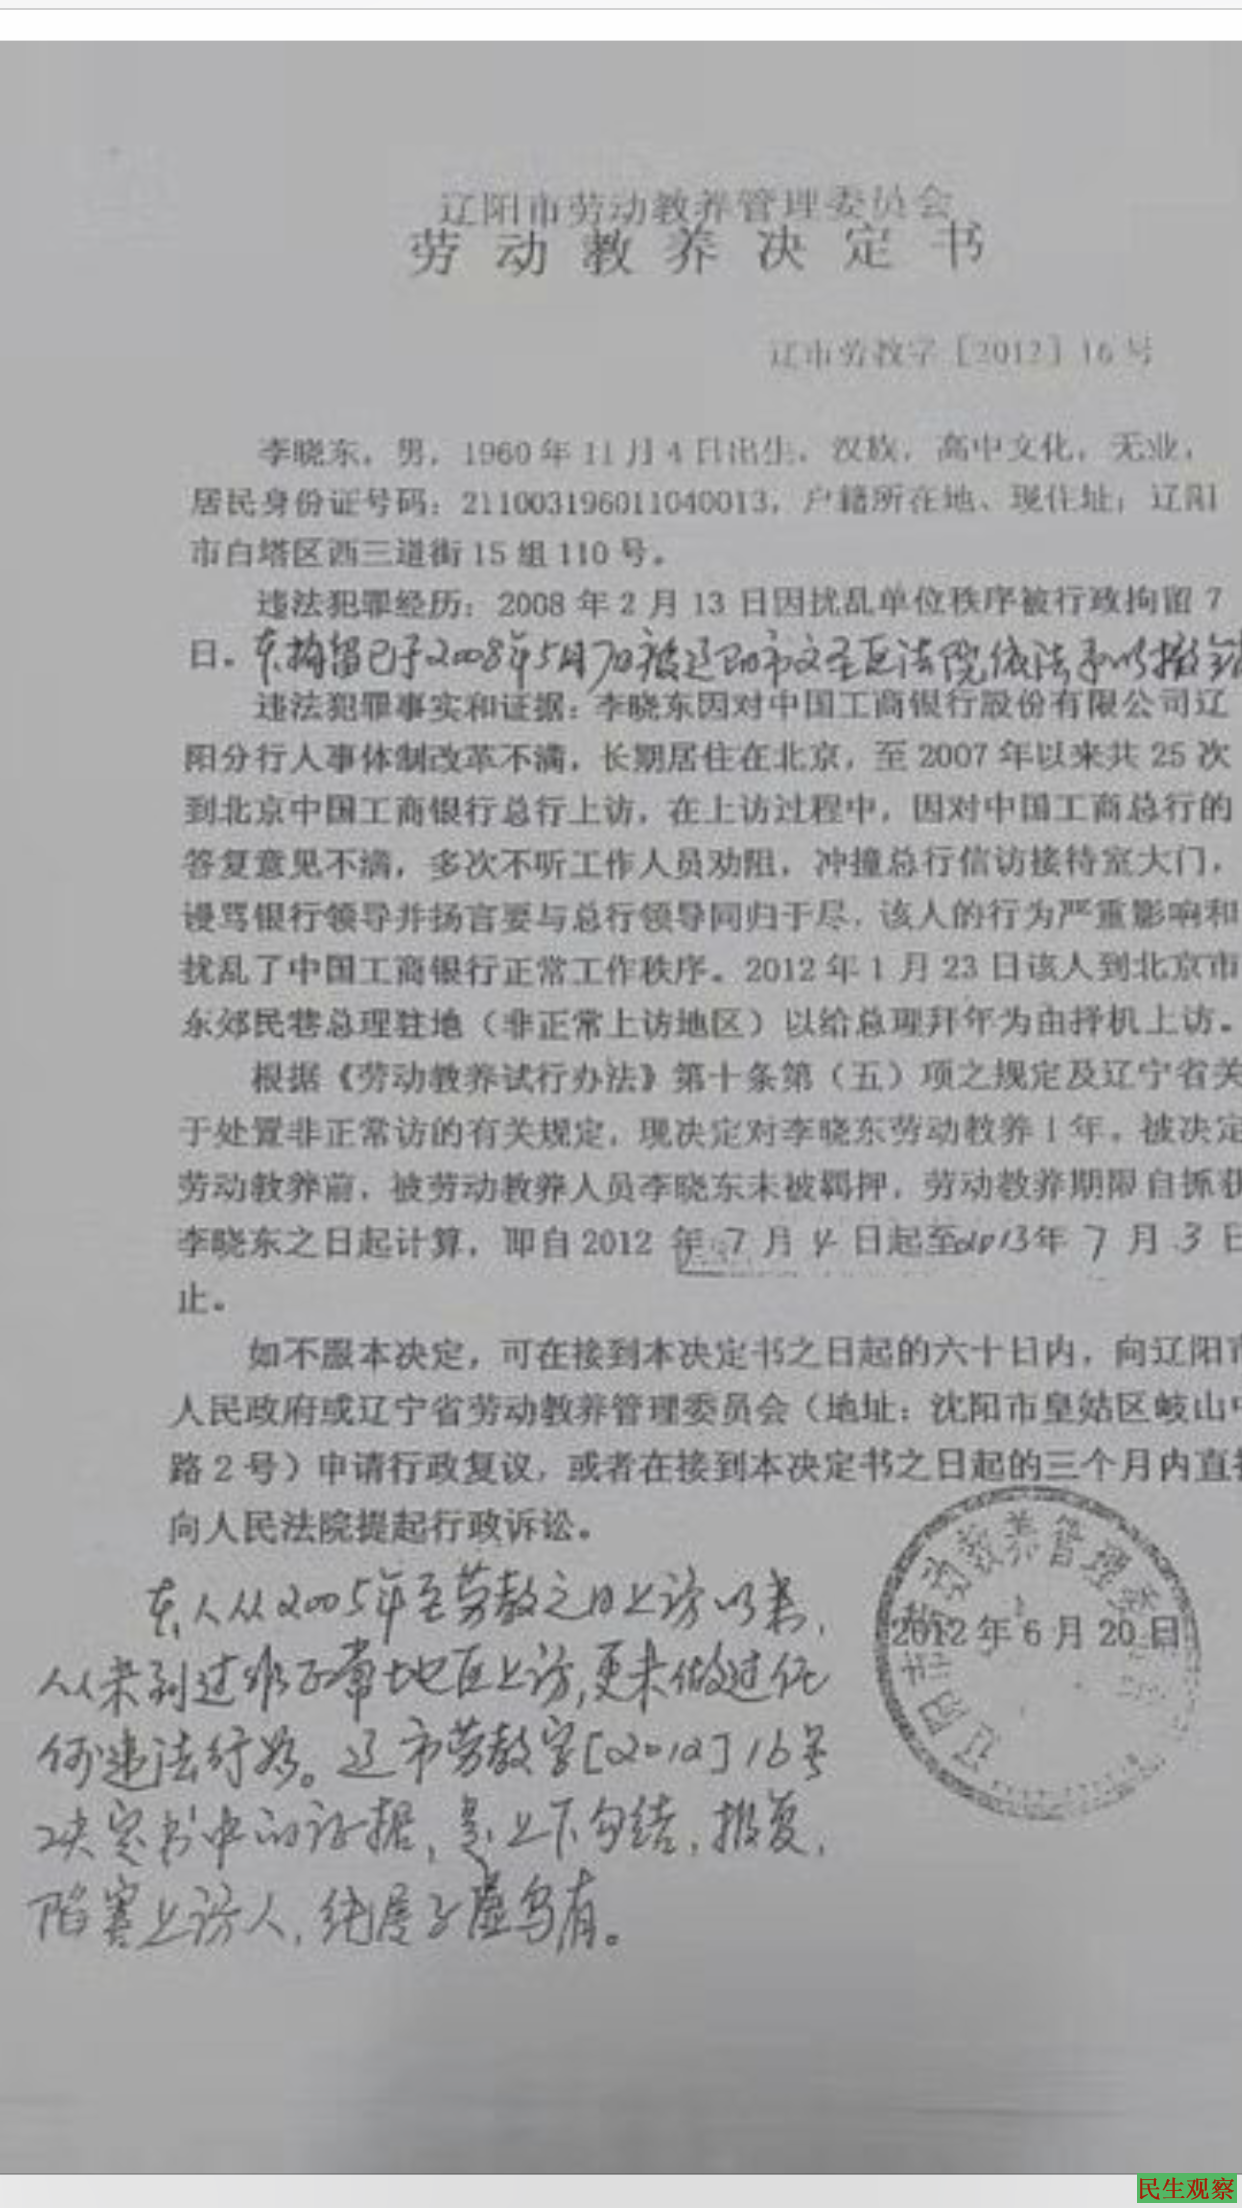 辽阳市劳动教养管理委员会
劳动教养决定书
辽市劳教字［2012］16号
李晓东，男，1960年11月4日出生，汉族，高中文化，无业，
居民身份证号码：211003196011040013，户籍所在地、现住址：辽阳
市白塔区西三道街15组110号。
违法犯罪经历：2008年2月13日因扰乱单位秩序被行政拘留7
日。本拘留已于2008年5月7日被辽阳市文圣区法院依法予以撤销
违法犯罪事实和证据：李晓东因对中国工商银行股份有限公司辽
阳分行人事体制改革不满，长期居住在北京，至2007年以来共25次
到北京中国工商银行总行上访，在上访过程中，因对中国工商总行的
答复意见不满，多次不听工作人员劝阻，冲撞总行信访接待室大门，
谩骂银行领导并扬言要与总行领导同归于尽，该人的行为严重影响和
扰乱了中国工商银行正常工作秩序。2012年1月23日该人到北京市
东郊民巷总理驻地（非正常上访地区）以给总理拜年为由择机上访。
根据《劳动教养试行办法》第十条第（五）项之规定及辽宁省关
于处置非正常访的有关规定，现决定对李晓东劳动教养1年。被决定
劳动教养前，被劳动教养人员李晓东未被羁押，劳动教养期限自抓获
李晓东之日起计算，即自2012年7月4日起至2013年7月3日
止。
如不服本决定，可在接到本决定书之日起的六十日内，向辽阳市
人民政府或辽宁省劳动教养管理委员会（地址：沈阳市皇姑区岐山中
路2号）申请行政复议，或者在接到本决定书之日起的三个月内直接
向人民法院提起行政诉讼。
2012年6月20日
本人从2005年至劳教之日上访以来，
从未到过非正常地区上访，更未做过任
何违法行为。辽市劳教字[2012]16号
决定书中的证据，是上下勾结，报复，
陷害上访人，纯属子虚乌有。
民生观察